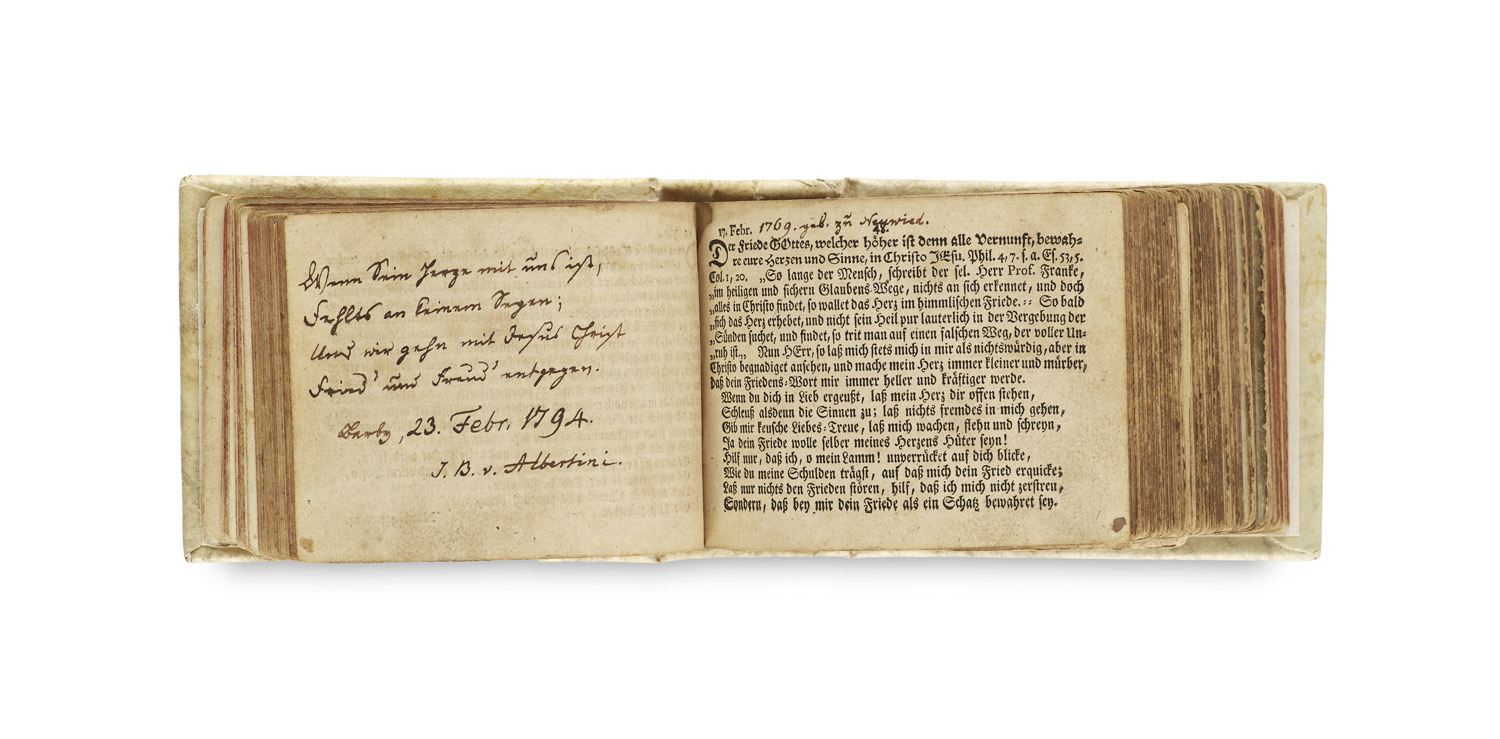 Wenn Sein Herze mit uns ist,
Fehlts an keinem Segen;
Und wir gehn mit Jesus Christ
Fried' und Freud' entgegen.
Barby, 23. Febr. 1794.
J. B. v. Albertini.
17. Febr. 1769. geb. zu Neuwied.
48.
Der Friede GOttes, welcher höher ist denn alle Vernunft, bewah-
re eure Herzen und Sinne, in Christo JEsu. Phil. 4, 7. s. a. Es. 53, 5.
Col. 1, 20. „So lange der Mensch, schreibt der sel. Herr Prof. Franke,
„im heiligen und sichern Glaubens-Wege, nichts an sich erkennet, und doch
„alles in Christo findet, so wallet das Herz im himmlischen Friede. :: So bald
„sich das Herz erhebet, und nicht sein Heil pur lauterlich in der Vergebung der
„Sünden suchet, und findet, so trit man auf einen falschen Weg, der voller Un-
„ruh ist.„ Nun HErr, so laß mich stets mich in mir als nichtswürdig, aber in
Christo begnadiget ansehen, und mache mein Herz immer kleiner und mürber,
daß dein Friedens-Wort mir immer heller und kräftiger werde.
Wenn du dich in Lieb ergeußt, laß mein Herz dir offen stehen,
Schleuß alsdenn die Sinnen zu; laß nichts fremdes in mich gehen,
Gib mir keusche Liebes-Treue, laß mich wachen, flehn und schreyn,
Ja dein Friede wolle selber meines Herzens Hüter seyn!
Hilf nur, daß ich, o mein Lamm! unverrücket auf dich blicke,
Wie du meine Schulden trägst, auf daß mich dein Fried erquicke;
Laß nur nichts den Frieden stören, hilf, daß ich mich nicht zerstreu,
Sondern, daß bey mir dein Friede als ein Schatz bewahret sey.